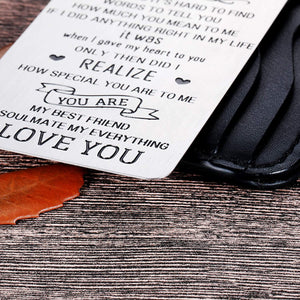 IT'S HARD TO FIND
WORDS TO TELL YOU
HOW MUCH YOU MEAN TO ME
IF I DID ANYTHING RIGHT IN MY LIFE
it was
when I gave my heart to you
ONLY THEN DID I
REALIZE
HOW SPECIAL YOU ARE TO ME
YOU ARE
MY BEST FRIEND
SOULMATE MY EVERYTHING
LOVE YOU